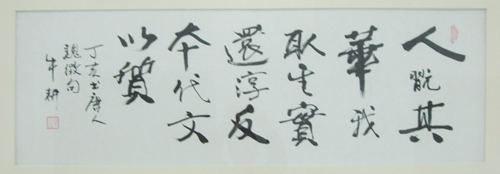 人翫其
華我
取其實
還淳反
本代文
以質
丁亥书唐人
魏徵句
牛耕